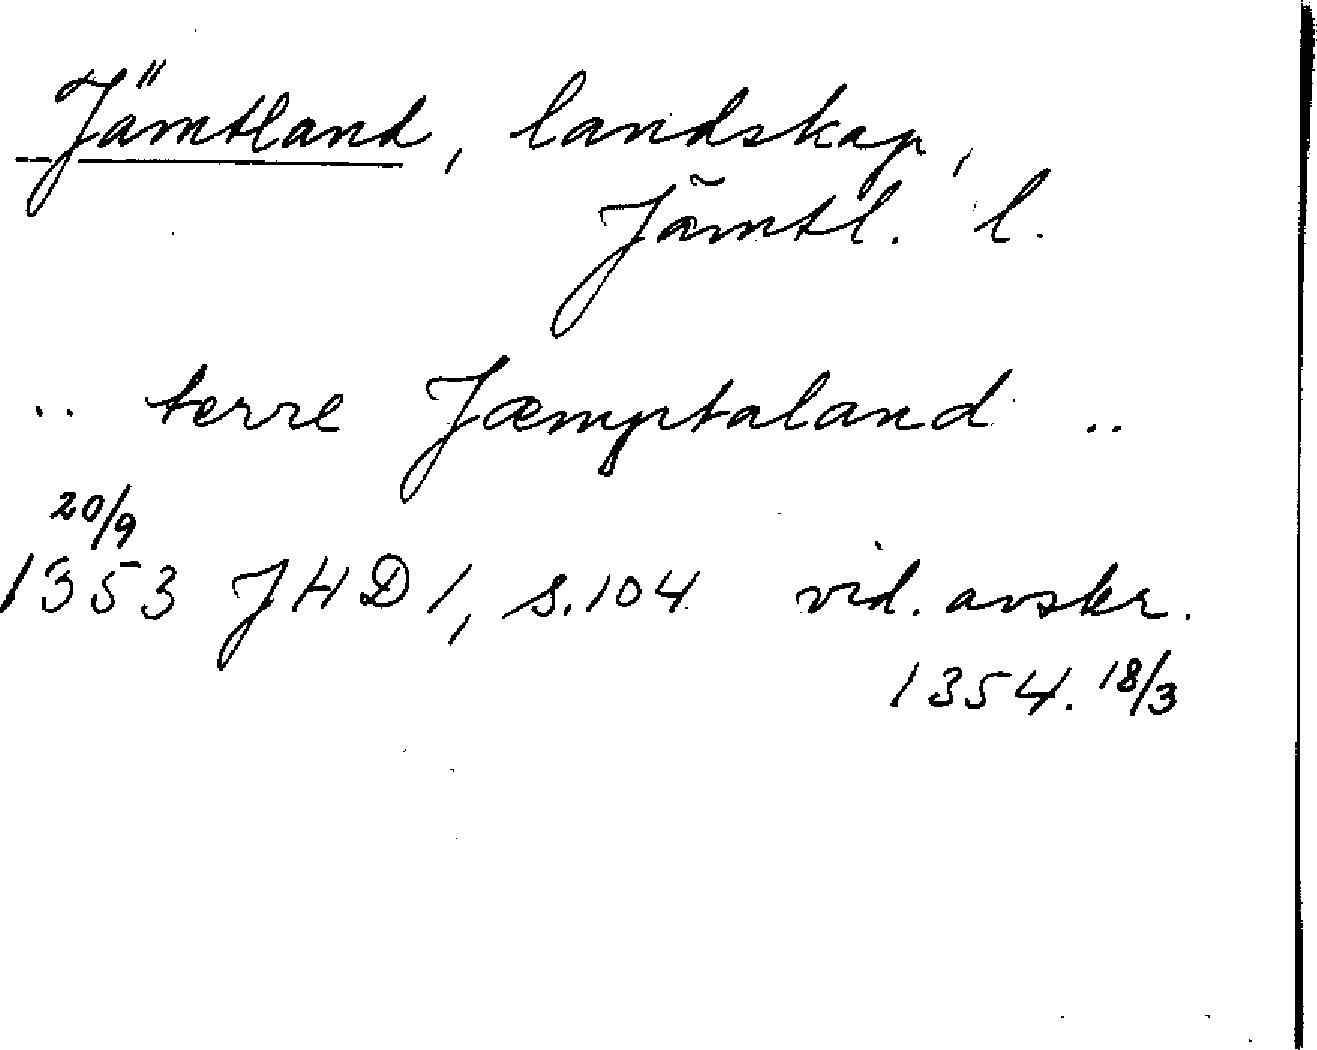 Jämtland, landskap,
Jämtl. l.
.. terre Jæmptaland ..
20/9
1353 JHD 1, s. 104 vid. avskr.
1354. 18/3